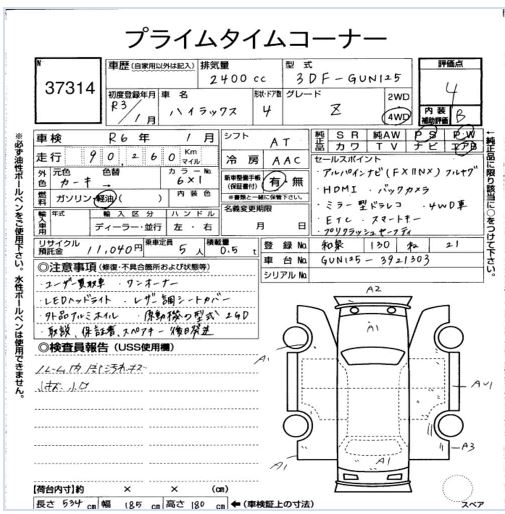 プライムタイムコーナー
N 37314
車歴 (自家用以外は記入) 排気量 2400cc 型式 3DF-GUN125 評価点 4
初度登録年月 R3/1月 車名 ハイラックス 形状・ドア数 4 グレード Z 2WD 4WD 内装補助評価 B
車検 R6年 1月 シフト AT 純正品 SR 純AW PS PW
カワ TV ナビ エアB
走行 90,260 Km マイル 冷房 AAC
セールスポイント
外色 元色 カーキ→ 色替 カラーNo 6X1 新車整備手帳(保証書付) 有・無
※書類と一緒に保管下さい。
・アルパインナビ(FX11NX) フルセグ
・HDMI ・バックカメラ
・ミラー型ドラレコ ・4WD車
・ETC ・スマートキー
・プリクラッシュセーフティ
燃料 ガソリン・軽油・
輸入車用 年式 輸入区分 ハンドル 名義変更期限
ディーラー・並行 左・右 月 日
リサイクル預託金 11,040円 乗車定員 5人 積載量 0.5t
登録No 和泉 130 ね 21
車台No GUN125-3921303
シリアルNo
◎注意事項 (修復・不具合箇所および状態等)
・ユーザー買取車 ・ワンオーナー
・LEDヘッドライト ・レザー調シートカバー
・外品アルミホイル ・原動機の型式 2GD
・取説、保証書、スペアキー 後日発送
◎検査員報告 (USS使用欄)
A2
A1
A1
A1
AU1
A3
A1
A1
スペア
【荷台内寸】約 × × (cm)
長さ 534cm 幅 185cm 高さ 180cm ←(車検証上の寸法)
※必ず油性ボールペンをご使用下さい。水性ボールペンは使用できません。
←純正品に限り該当に○をつけて下さい。